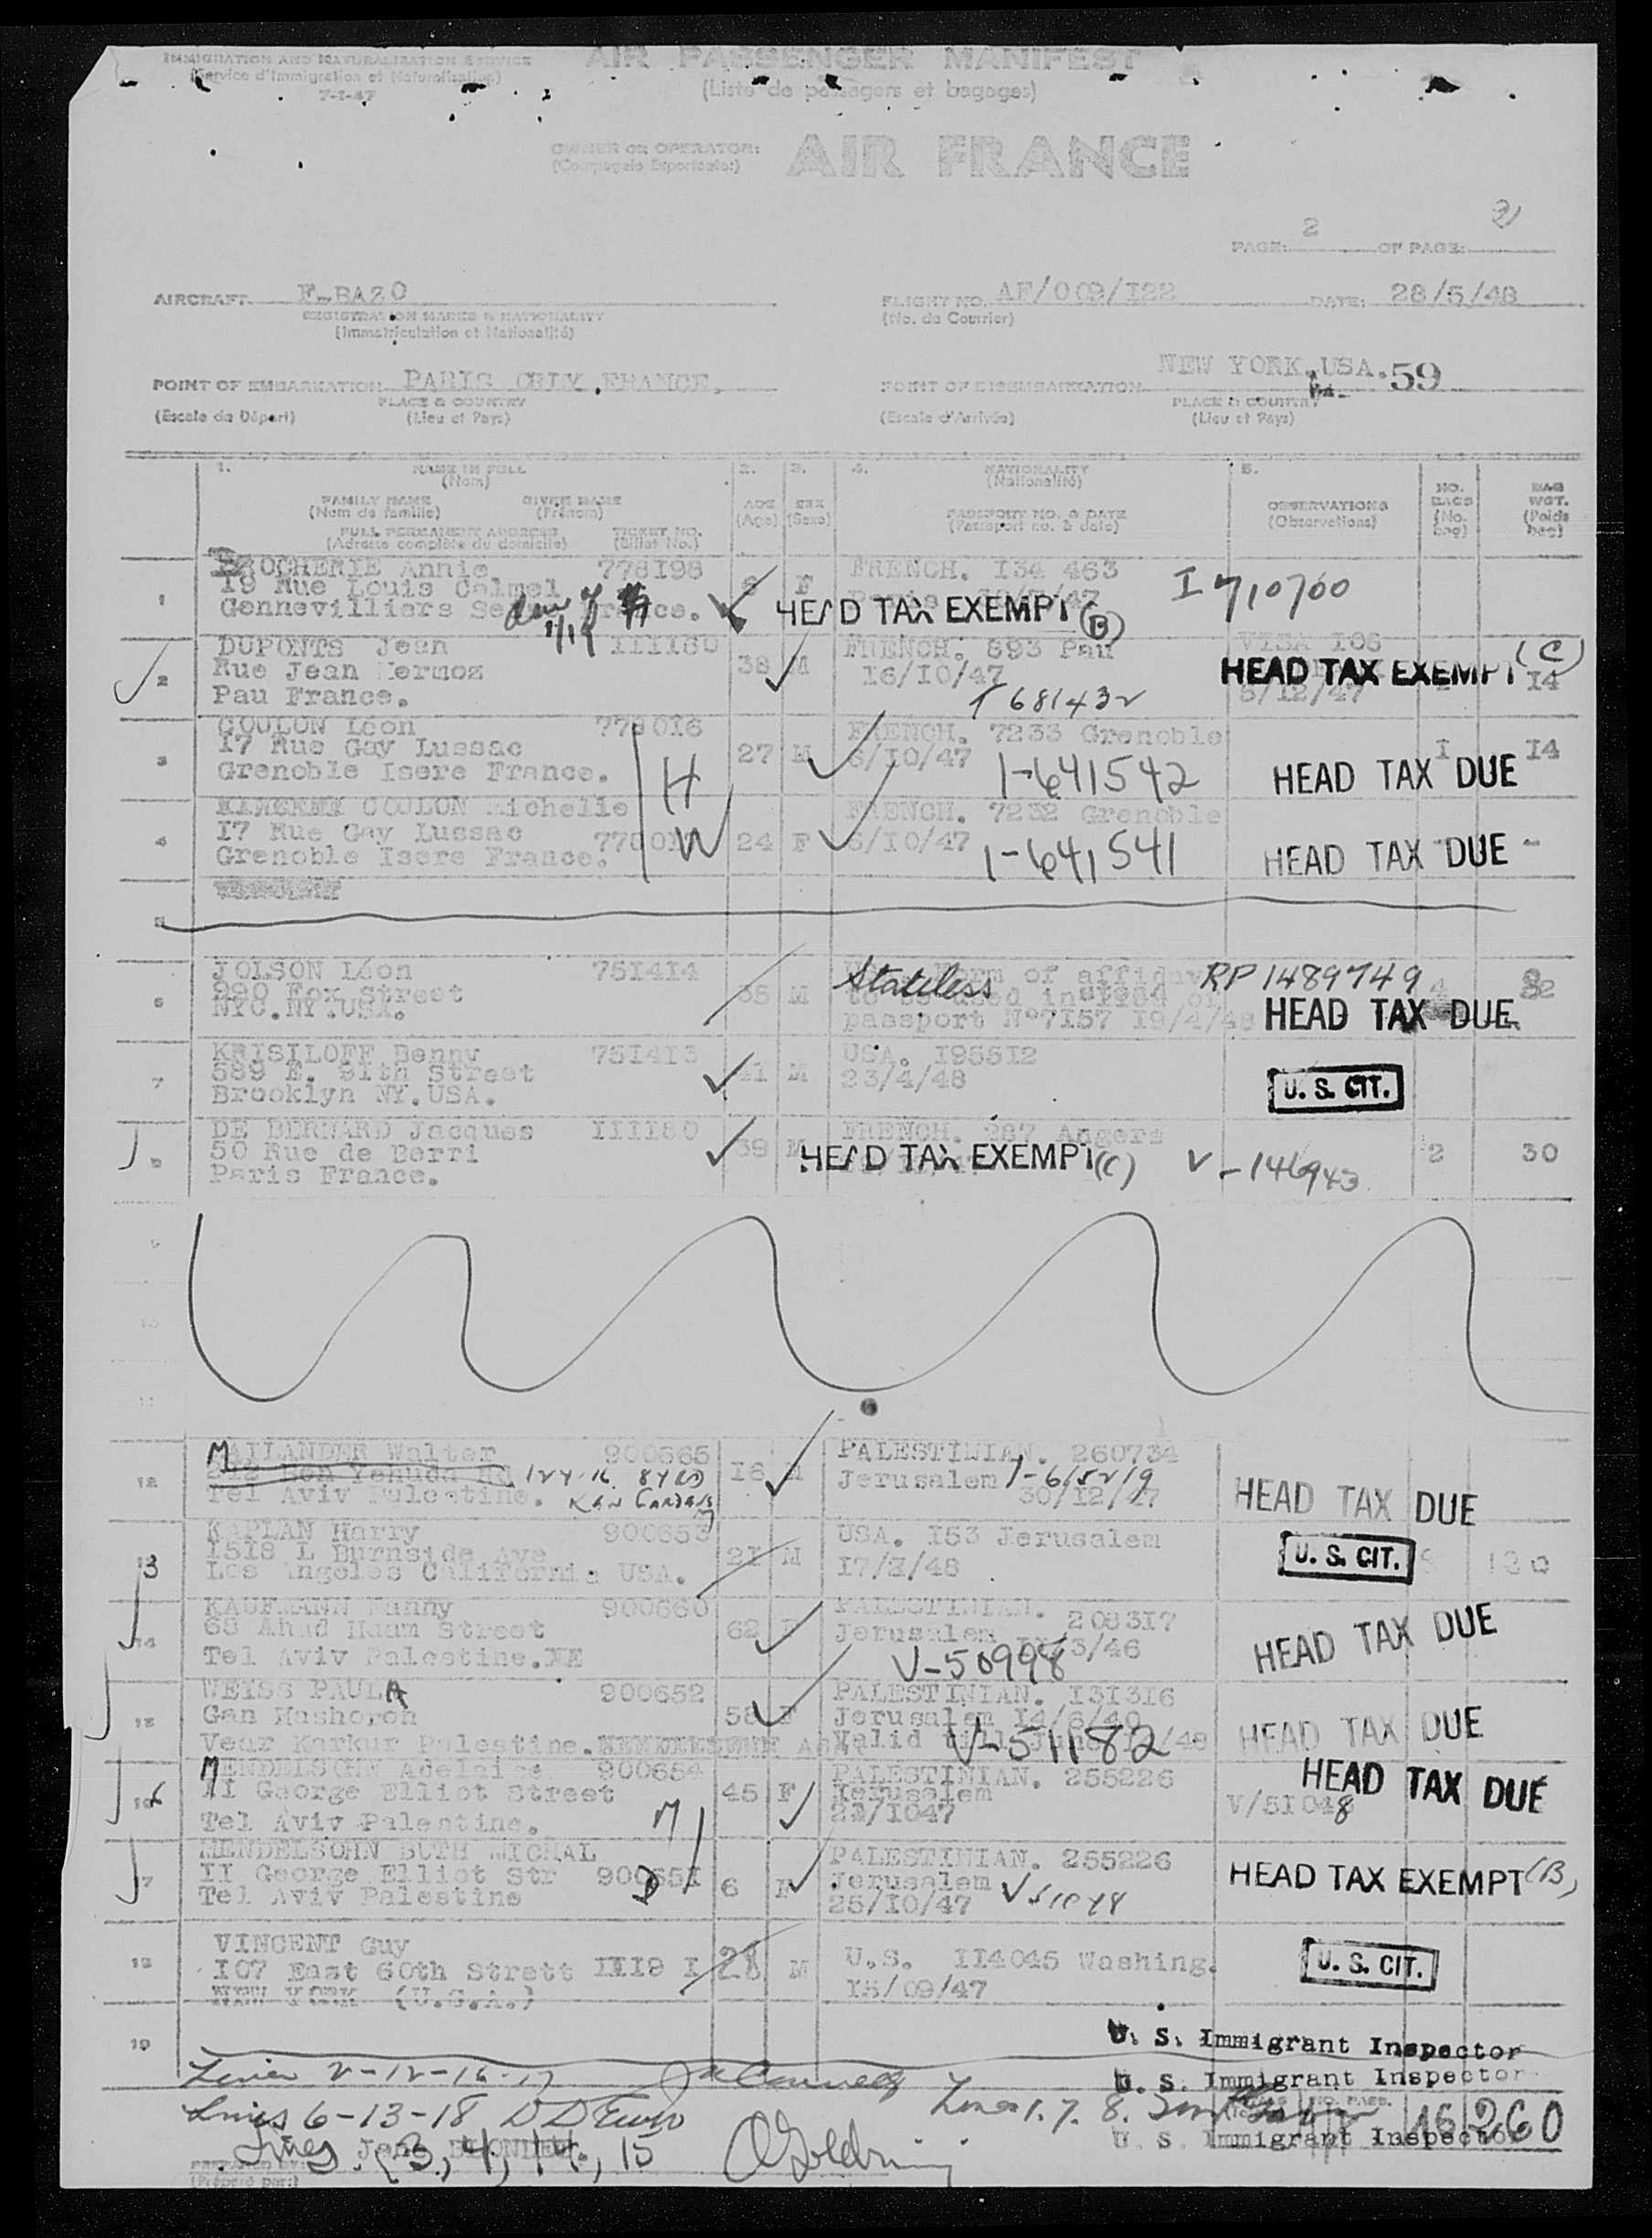 IMMIGRATION AND NATURALIZATION SERVICE
(Service d'Immigration et Naturalisation)
7-1-47
AIR PASSENGER MANIFEST
(Liste de passagers et bagages)
OWNER OR OPERATOR:
AIR FRANCE
PAGE: 2 OF PAGE:
AIRCRAFT F-BAZO
REGISTRATION MARKS & NATIONALITY
(Immatriculation et Nationalité)
FLIGHT NO. AF/009/I22 DATE: 28/5/48
(No. de Courrier)
POINT OF EMBARKATION PARIS ORLY .FRANCE.
PLACE & COUNTRY
(Escale de Départ) (Lieu et Pays)
POINT OF DISEMBARKATION NEW YORK.USA. 59
PLACE & COUNTRY
(Escale d'Arrivée) (Lieu et Pays)
1. NAME IN FULL
(Nom)
FAMILY NAME GIVEN NAME
(Nom de famille) (Prénom)
FULL PERMANENT ADDRESS TICKET NO.
(Adresse complète du domicile) (Billet No.)
2. AGE
(Age)
3. SEX
(Sexe)
4. NATIONALITY
(Nationalité)
PASSPORT NO. & DATE
(Passeport no. & date)
5. OBSERVATIONS
(Observations)
NO. BAGS
(No. bag)
BAG WGT.
(Poids bag)
1 BROCHERIE Annie 778I98 F FRENCH. I34 463 I 710700
I9 Rue Louis Calmel
Gennevilliers HEAD TAX EXEMPT (B)
2 DUPONTS Jean IIII80 38 M FRENCH. 893 Pau VISA I06
Rue Jean Mermoz I6/I0/47 HEAD TAX EXEMPT (C) I4
Pau France. 681432 5/I2/47
3 COULON Léon 778016 27 M FRENCH. 7233 Grenoble I I4
I7 Rue Gay Lussac 6/I0/47 I-641542 HEAD TAX DUE
Grenoble Isere France. H
4 COULON Michelle 24 F FRENCH. 7232 Grenoble
I7 Rue Gay Lussac 6/I0/47 I-641541 HEAD TAX DUE -
Grenoble Isere France. W
5
6 JOLSON Léon 75I4I4 38 M Stateless Form of affidav RP 1489749
990 Fox Street to be used in
NYC.NY.USA. passport N°7I57 I9/4/48 HEAD TAX DUE
7 KRISILOFF Benny 75I4I3 41 M USA. I95512
589 E. 91th Street 23/4/48 U. S. CIT.
Brooklyn NY.USA.
8 DE BERNARD Jacques IIII80 39 M FRENCH. 287 Angers 2 30
50 Rue de Berri HEAD TAX EXEMPT (C) V-146943
Paris France.
9
10
11
12 MAILANDER Walter 900665 I6 M PALESTINIAN. 260734
242 Ben Yehuda Rd 124-16 84 RD Jerusalem I-615219
Tel Aviv Palestine. KEW GARDENS 30/I2/47 HEAD TAX DUE
13 KAPLAN Harry 900653 2I M USA. I53 Jerusalem
I5I8 L Burnside Ave I7/3/48 U. S. CIT.
Los Angeles California USA.
14 KAUFMANN Fanny 900660 62 F PALESTINIAN. 2083I7
68 Ahad Haam Street Jerusalem 3/46 HEAD TAX DUE
Tel Aviv Palestine. V-50998
15 WEISS PAULA 900652 58 F PALESTINIAN. I3I3I6
Gan Hashoron Jerusalem I4/6/40
Vear Karkur Palestine. Valid V-51182 HEAD TAX DUE
16 MENDELSOHN Adelaide 900654 45 F PALESTINIAN. 255226
II George Elliot Street Jerusalem V/5I048 HEAD TAX DUE
Tel Aviv Palestine. M
17 MENDELSOHN RUTH MICHAL PALESTINIAN. 255226
II George Elliot Str 90065I 6 F Jerusalem V 51048 HEAD TAX EXEMPT (B)
Tel Aviv Palestine D 25/I0/47
18 VINCENT Guy U.S. II4045 Washing.
I07 East 60th Strett III9 I 28 M U. S. CIT.
NEW YORK (U.S.A.) I5/09/47
19
U. S. Immigrant Inspector
Lines 2-12-16-17
U. S. Immigrant Inspector
Lines 6-13-18 Lines 1. 7. 8. 16 260
U. S. Immigrant Inspector
Lines (3, 4, 14, 15